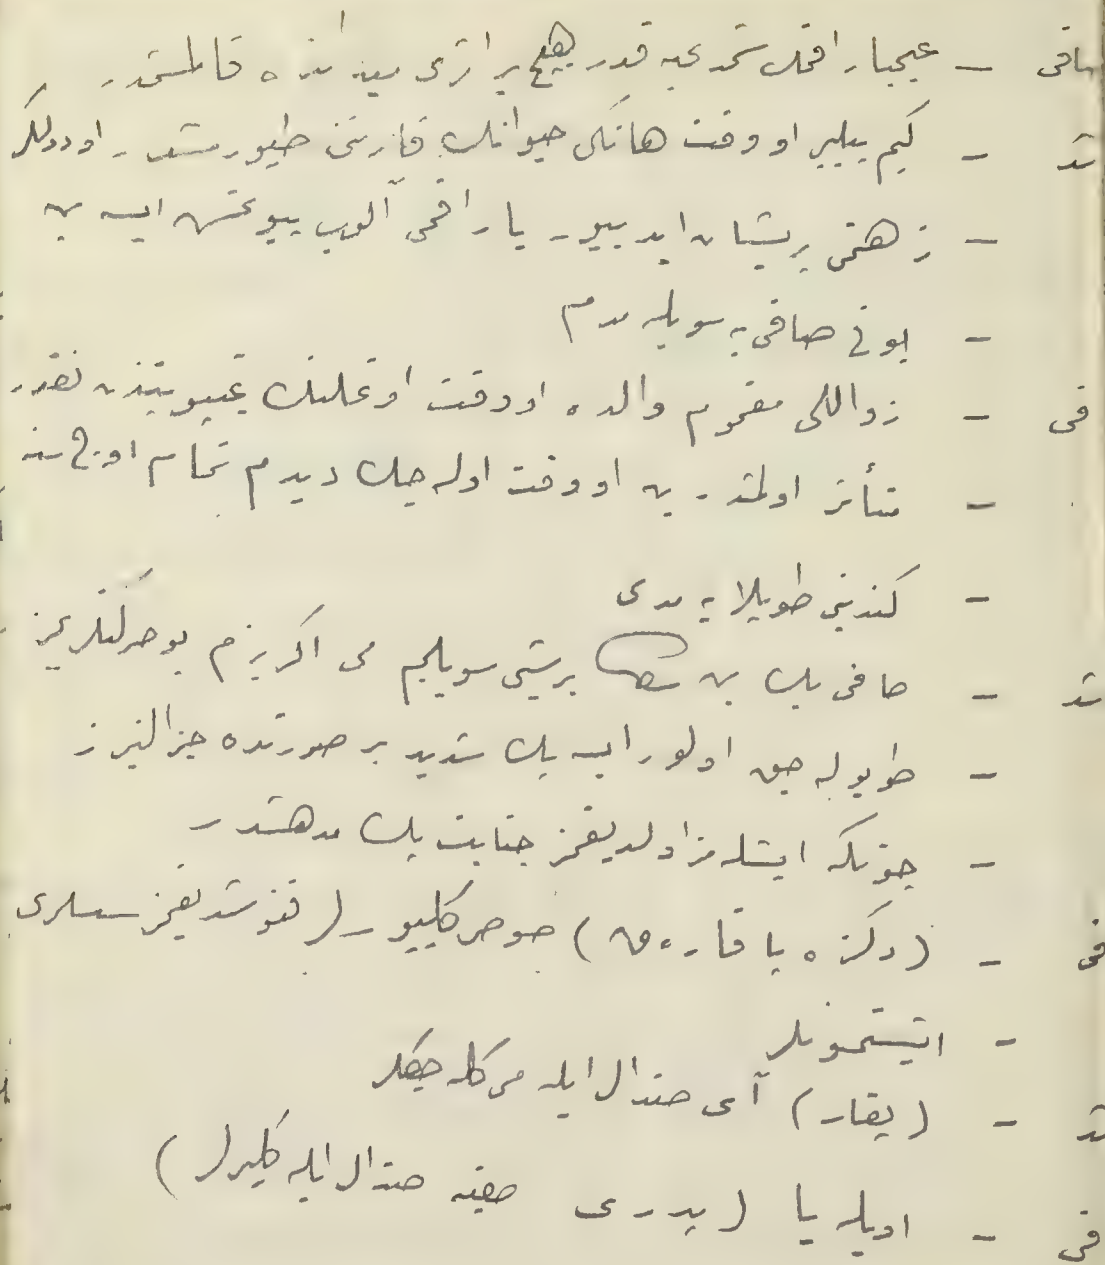 صافی — عجبا راقمك شمدی‌یه قدر هیچ بر اثری میدانده قالمامشدر
شد — کیم بیلیر او وقت هانکی حیوانك قارننی طیورمشدر اودولکر
— زهنمی پریشان ایدییور یا راقمی آلوب بیوتمش ایسه بن
— بونی صافی‌یه سویله‌مدم
فی — زواللی مغموم والده او وقت اوغلنك غیبوبتندن نقدر
— متأثر اولمشدر بن او وقت اوله‌جك دیدم تمام اون سنه
— کندینی طوپلایه‌مدی
شد — صافی بك بن سکا برشی سویلیم می اکر بزم بو حرکتلریمز
— طویوله‌جق اولور ایسه پك شدید بر صورتده جزالنیرز
— چونکه ایشله‌مز اولدیغمز جنایت پك مدهشدر
فی — (دکزه باقارەق) صوصر کلییور (قونوشدیغمز سسلری
— ایشیتمسونلر
شد — (یقار) آی صندال ایله می کله‌جکلر
فی — اویله یا (بدری صفیه صندال ایله کلیرلر)